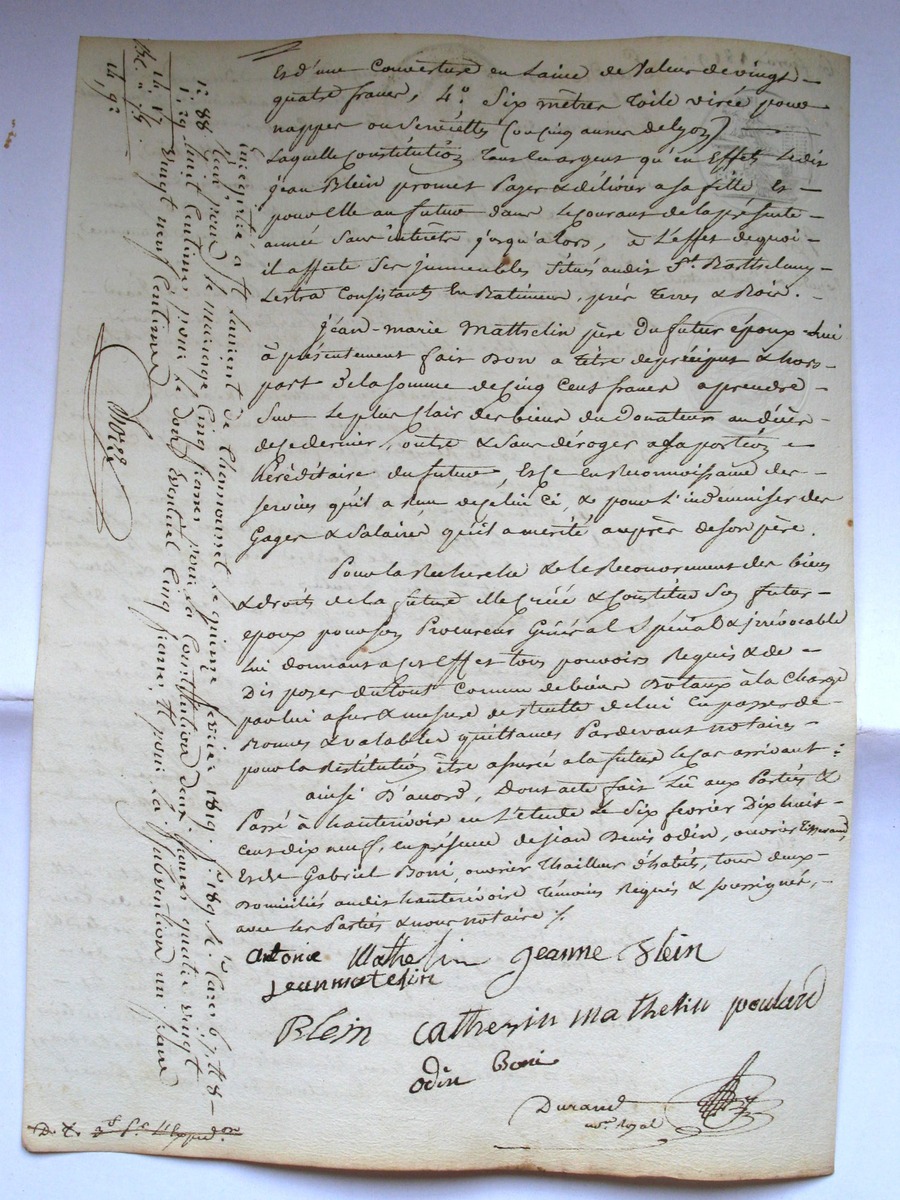 Et d'une Couverture en Laine de valeur de vingt
quatre francs, 4.º Six mètres Toile virée pour
nappes ou Serviettes (ou cinq aunes de Lyon)
Laquelle Constitution Tant En argent qu'en Effets Ledit
jean Blein promet Payer & délivrer a sa fille Et
pour Elle au futur dans le courant de la présente
année Sans intérêts jusqu'alors, à L'effet de quoi
il affecte Ses immeubles Situés audit S.t Barthelemy
Lestra Consistants En Batiments, prés Terres & Bois.
jean-marie Mathelin père du futur époux Lui
à présentement fait Don a titre de préciput & hors
part de la somme de Cinq Cent francs a prendre
Sur Le plus Clair des biens du Donateur au décès
de ce dernier, outre & Sans déroger a sa portion
héréditaire du futur, Et ce en Reconnoissance des
Services qu'il a de Celui ci, & pour L'indemniser des
Gages & Salaires qu'il a mérité auprès de son père.
Pour la Recherche & le Recouvrement des biens
& droits de La future Elle Créé & Constitue Son futur
époux pour Son Procureur Général Spécial & irrévocable
Lui donnant a cet Effet tous pouvoirs Requis & de
Disposer du tout Comme de biens Dotaux à la Charge
par lui a fur & mesure de de lui En passer de
Bonnes & valables quittances Pardevant notaires
pour la Restitution être assurée a la future le cas arrivant
ainsi D'accord, Dont acte fait Lu aux Parties &
Passé à hauterivoire en L'étude Le Six février Dix huit
Cent dix neuf, en présence de jean Denis odin, ouvrier Tisserand
Et de Gabriel Boni, ouvrier Thailleur d'habits, tous deux
Domiciliés audit hauterivoire Témoins Requis & soussignés,
avec les Parties & nous notaire /.
antoine Mathelin jeanne Blein
jean matelin
Blein Catherin mathelin poulard
odin Boni
Durand
not. Royal
Enregistré a St Laurent de Chamousset le quinze février 1819. f.º 189 R.º Cases 6, 7 et 8
Reçu pour le mariage Cinq francs, pour la Constitution deux francs quatre vingt
huit Centimes, pour le don Eventuel Cinq francs, et pour la subvention un franc
vingt neuf Centimes